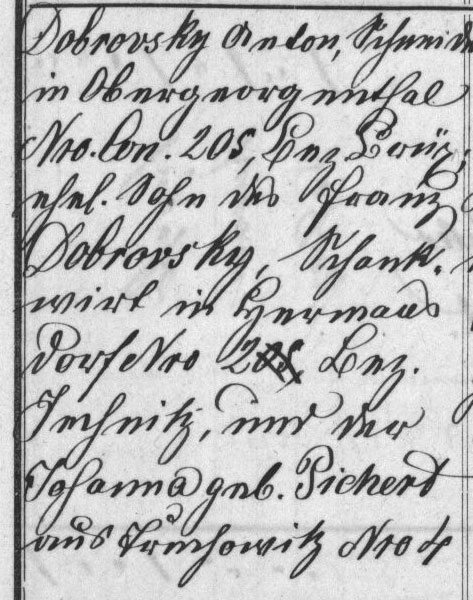 Dobrovsky Anton, Schneide
in Obergeorgenthal
Nro. Con. 205, Bez. Brüx,
ehel. Sohn des Franz
Dobrovsky, Schank-
wirt in Hermans
dorf Nro 2 Bez.
Jechnitz, und der
Johanna geb. Pichert
aus Nro 4